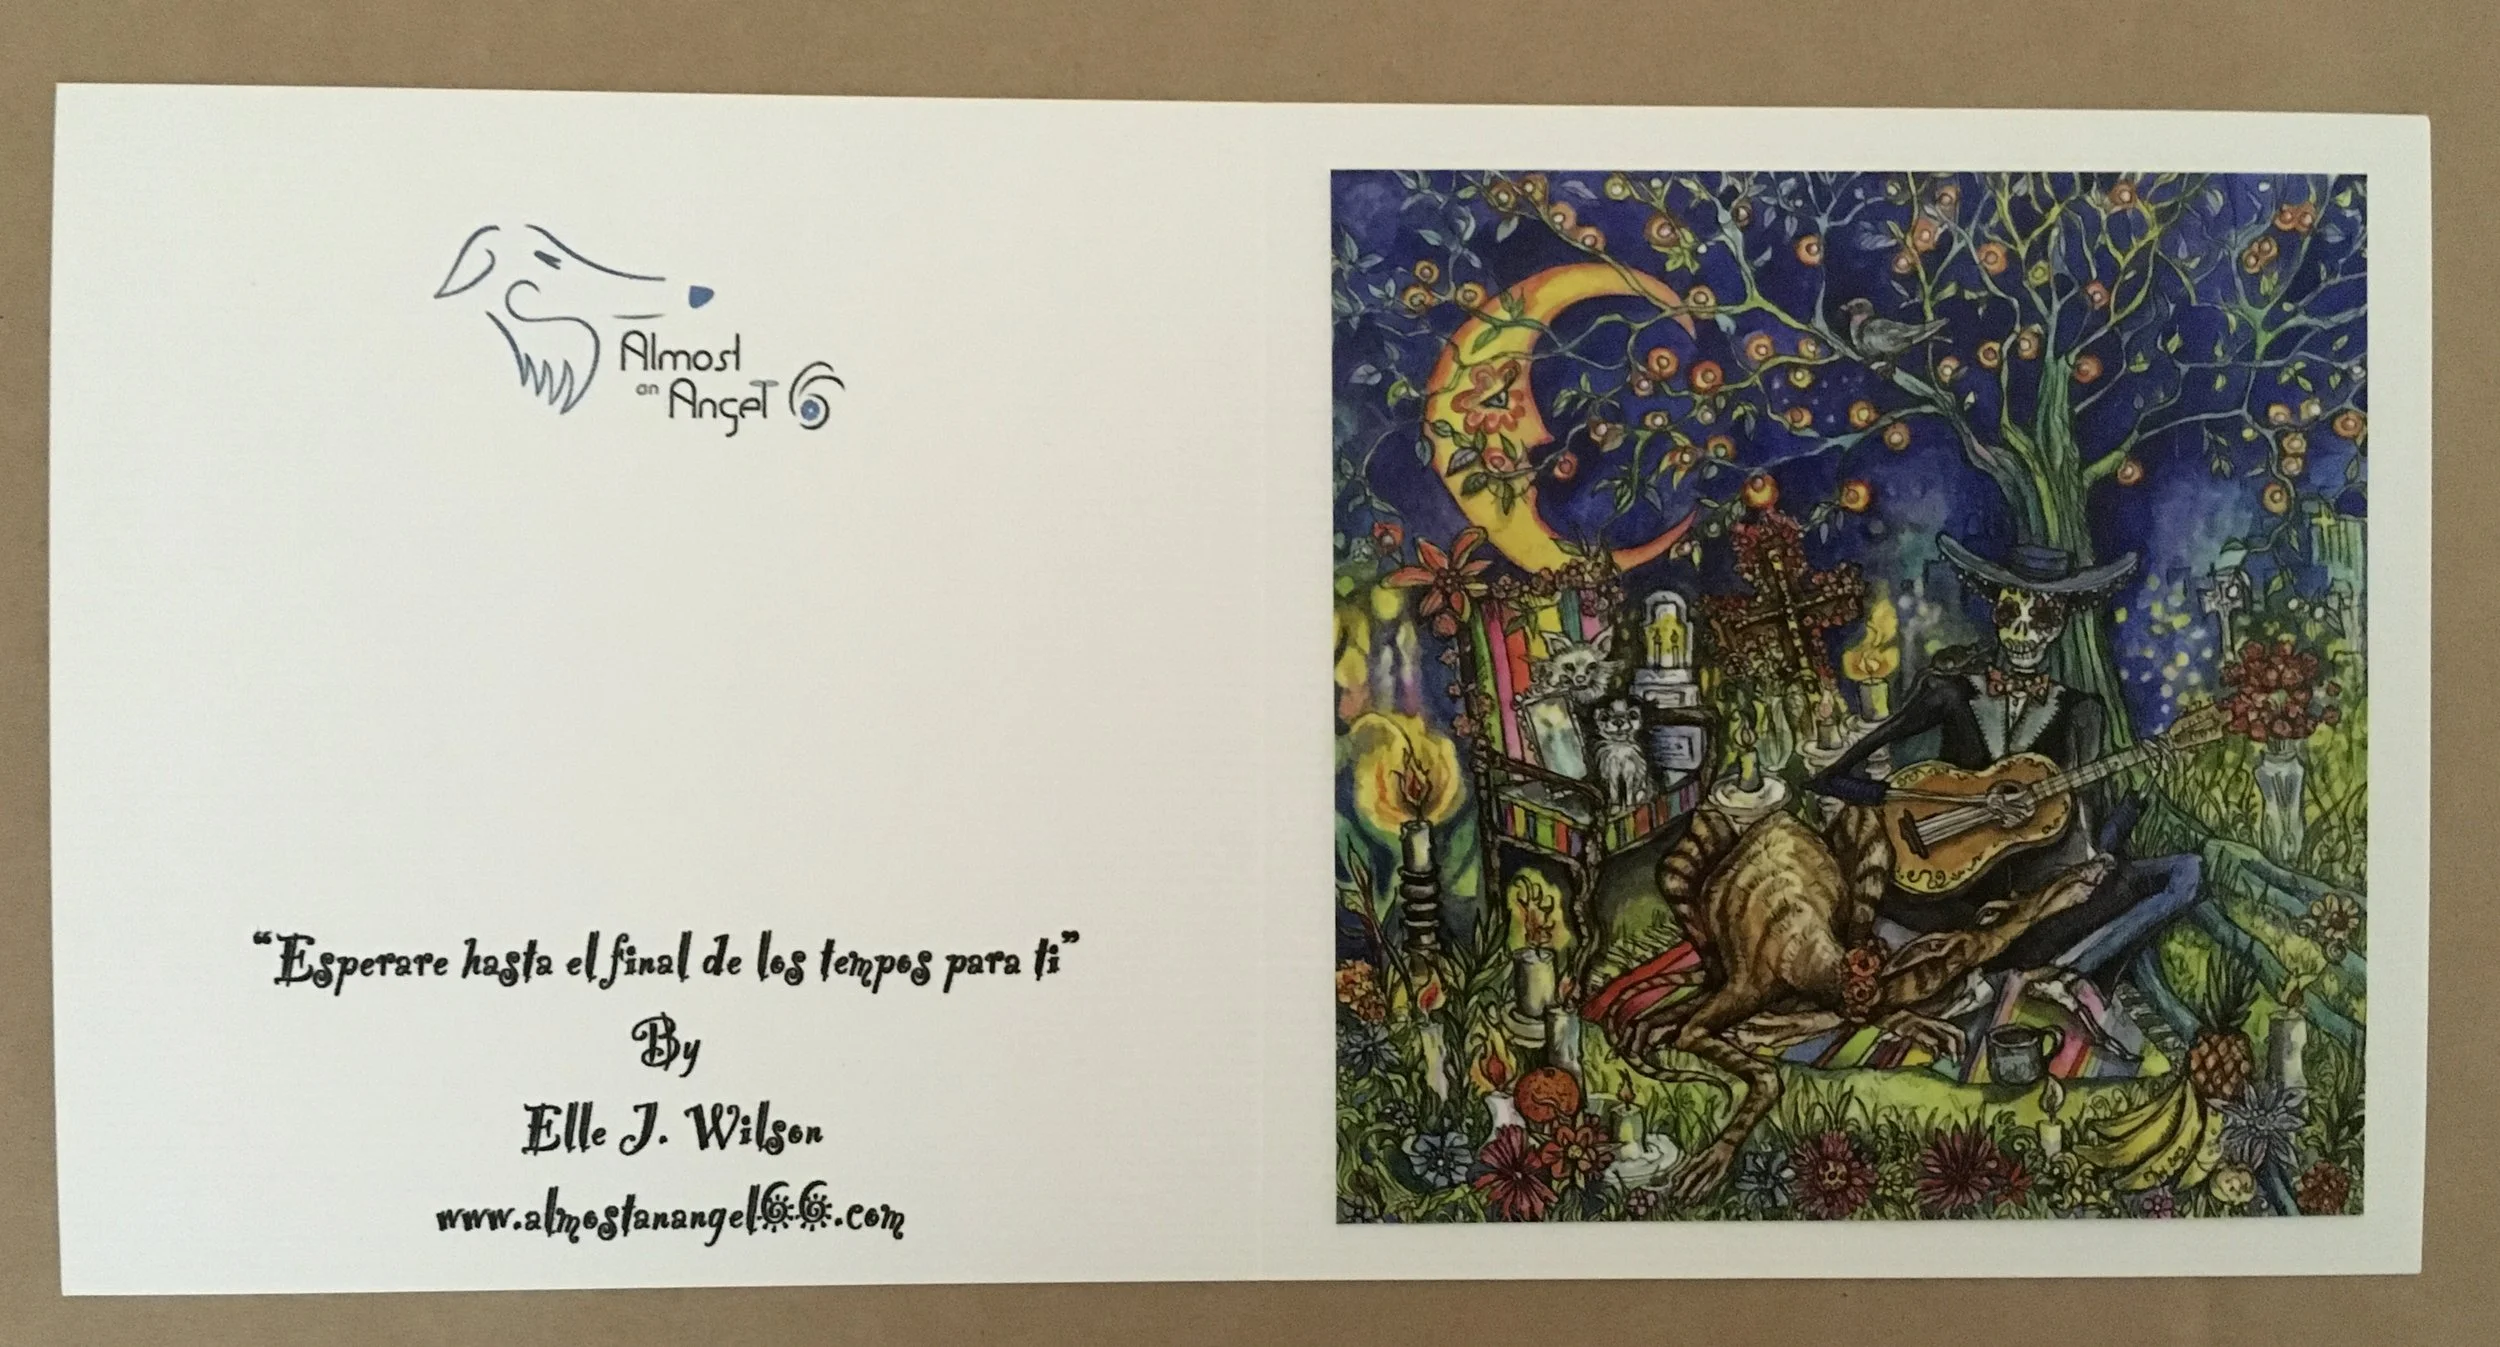 Almost
an Angel 6
“Esperare hasta el final de los tempos para ti”
By
Elle J. Wilson
www.almostanangel66.com